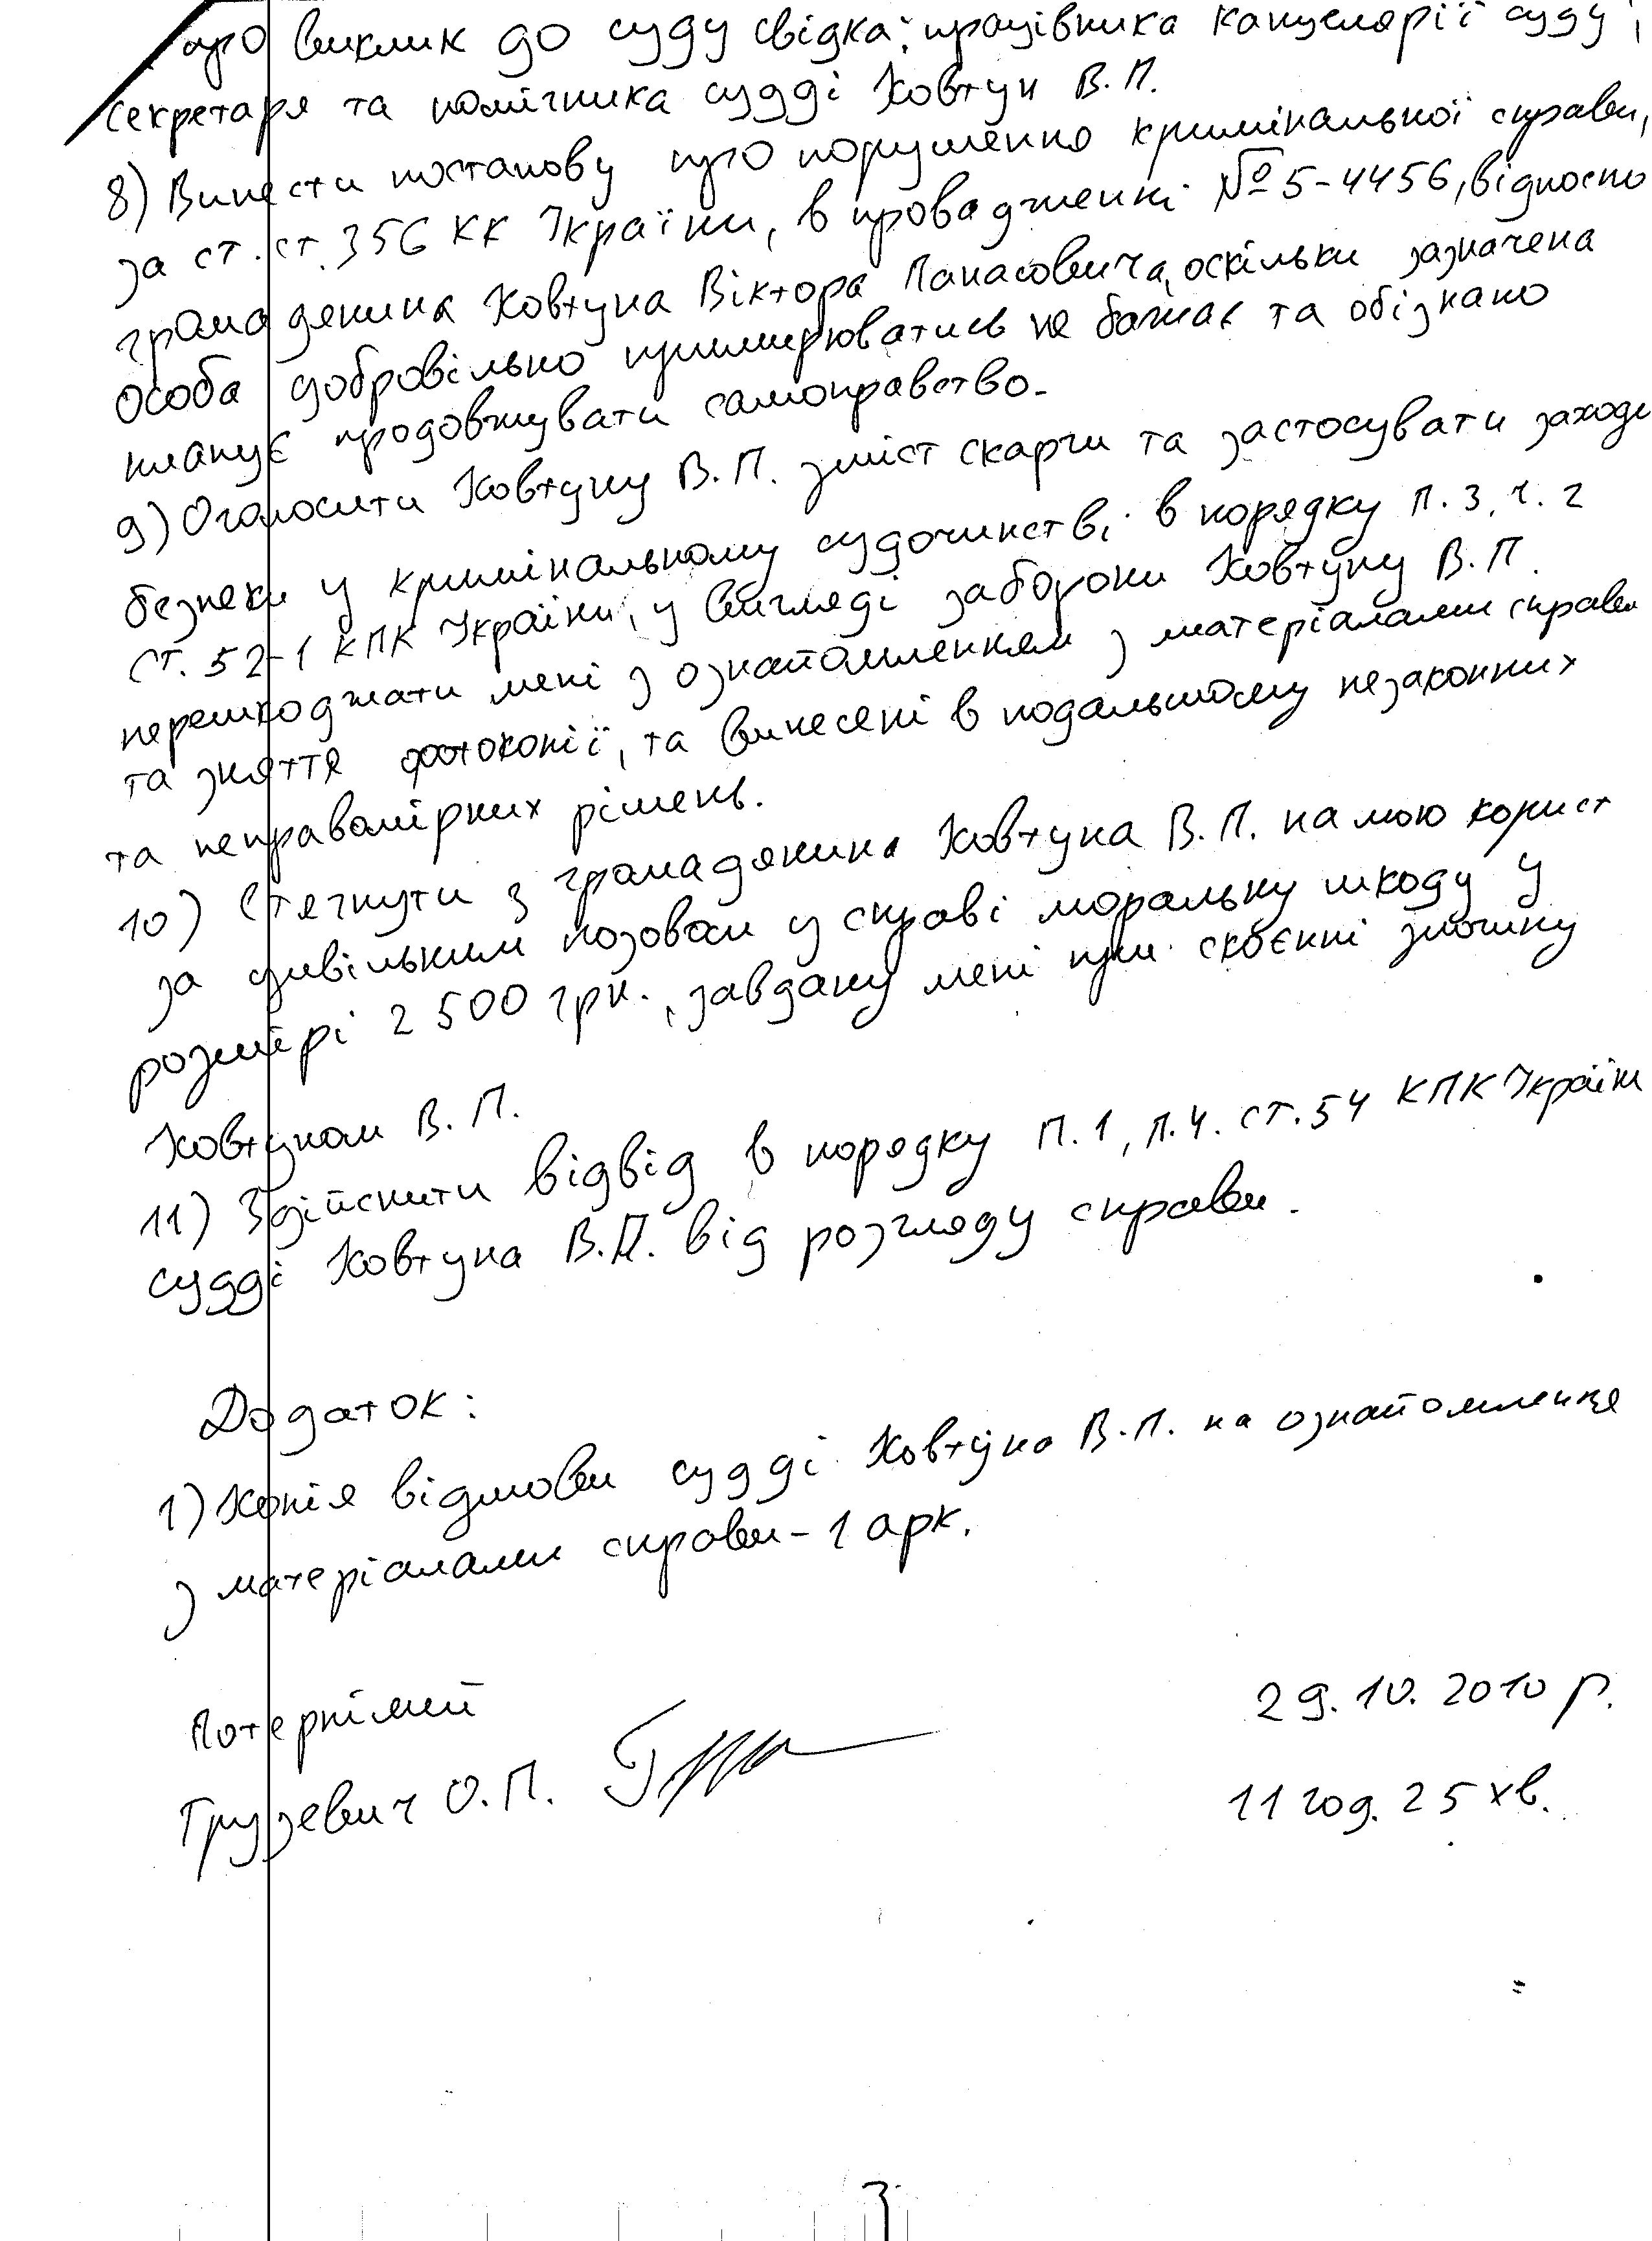 про виклик до суду свідка: працівника канцелярії суду,
секретаря та помічника судді Ковтун В.П.
8) Винести постанову про порушення кримінальної справи,
за ст.ст. 356 КК України, в провадженні №5-4456, відносно
громадянина Ковтуна Віктора Панасовича, оскільки зазначена
особа добровільно примирюватись не бажає та обізнано
планує продовжувати самоправство.
9) Оголосити Ковтуну В.П. зміст скарги та застосувати заходи
безпеки у кримінальному судочинстві в порядку п.3, ч.2
ст. 52-1 КПК України, у вигляді заборони Ковтуну В.П.
перешкоджати мені з ознайомленням з матеріалами справи
та зняття фотокопії, та винесені в подальшому незаконних
та неправомірних рішень.
10) Стягнути з громадянина Ковтуна В.П. на мою корист
за цивільним позовом у справі моральну шкоду у
розмірі 2 500 грн., завдану мені при скоєнні злочину
Ковтуном В.П.
11) Здійснити відвід в порядку п.1, п.4. ст.54 КПК Україн
судді Ковтуна В.П. від розгляду справи.
Додаток:
1) Копія відмови судді Ковтуна В.П. на ознайомлення
з матеріалами справи - 1 арк.
Потерпілий
29.10.2010 р.
Грузевич О.П.
11 год. 25 хв.
3